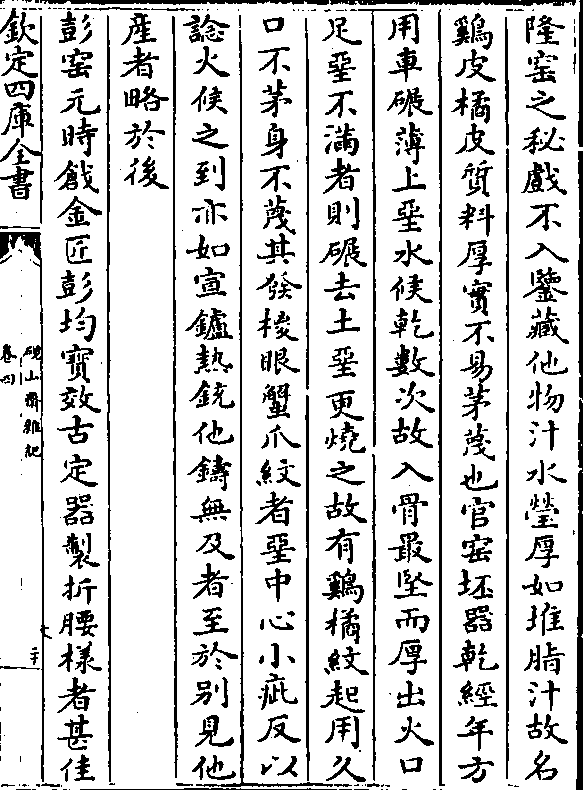 隆窑之秘戲不入鑒藏他物汁水瑩厚如堆脂汁故名
鷄皮橘皮質料厚實不易茅蔑也官窑坯器乾經年方
用車碾薄上堊水候乾數次故入骨最堅而厚出火口
足堊不滿者則碾去土堊更燒之故有鷄橘紋起用久
口不茅身不蔑其發棱眼蟹爪紋者堊中心小疵反以
諗火候之到亦如宣鑪熱銃他鑄無及者至於别見他
産者略於後
彭窑元時戧金匠彭均寳效古定器製折腰樣者甚佳
欽定四庫全書
硯山齋雜記
卷四
二十